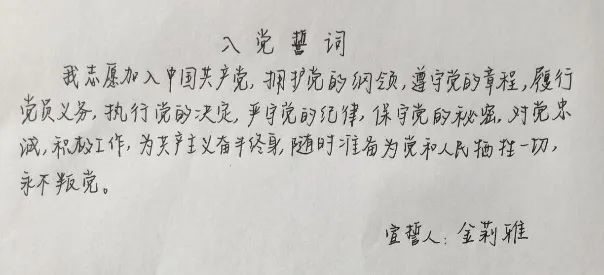 入党誓词
我志愿加入中国共产党,拥护党的纲领,遵守党的章程,履行
党员义务,执行党的决定,严守党的纪律,保守党的秘密,对党忠
诚,积极工作,为共产主义奋斗终身,随时准备为党和人民牺牲一切,
永不叛党。
宣誓人:金莉雅